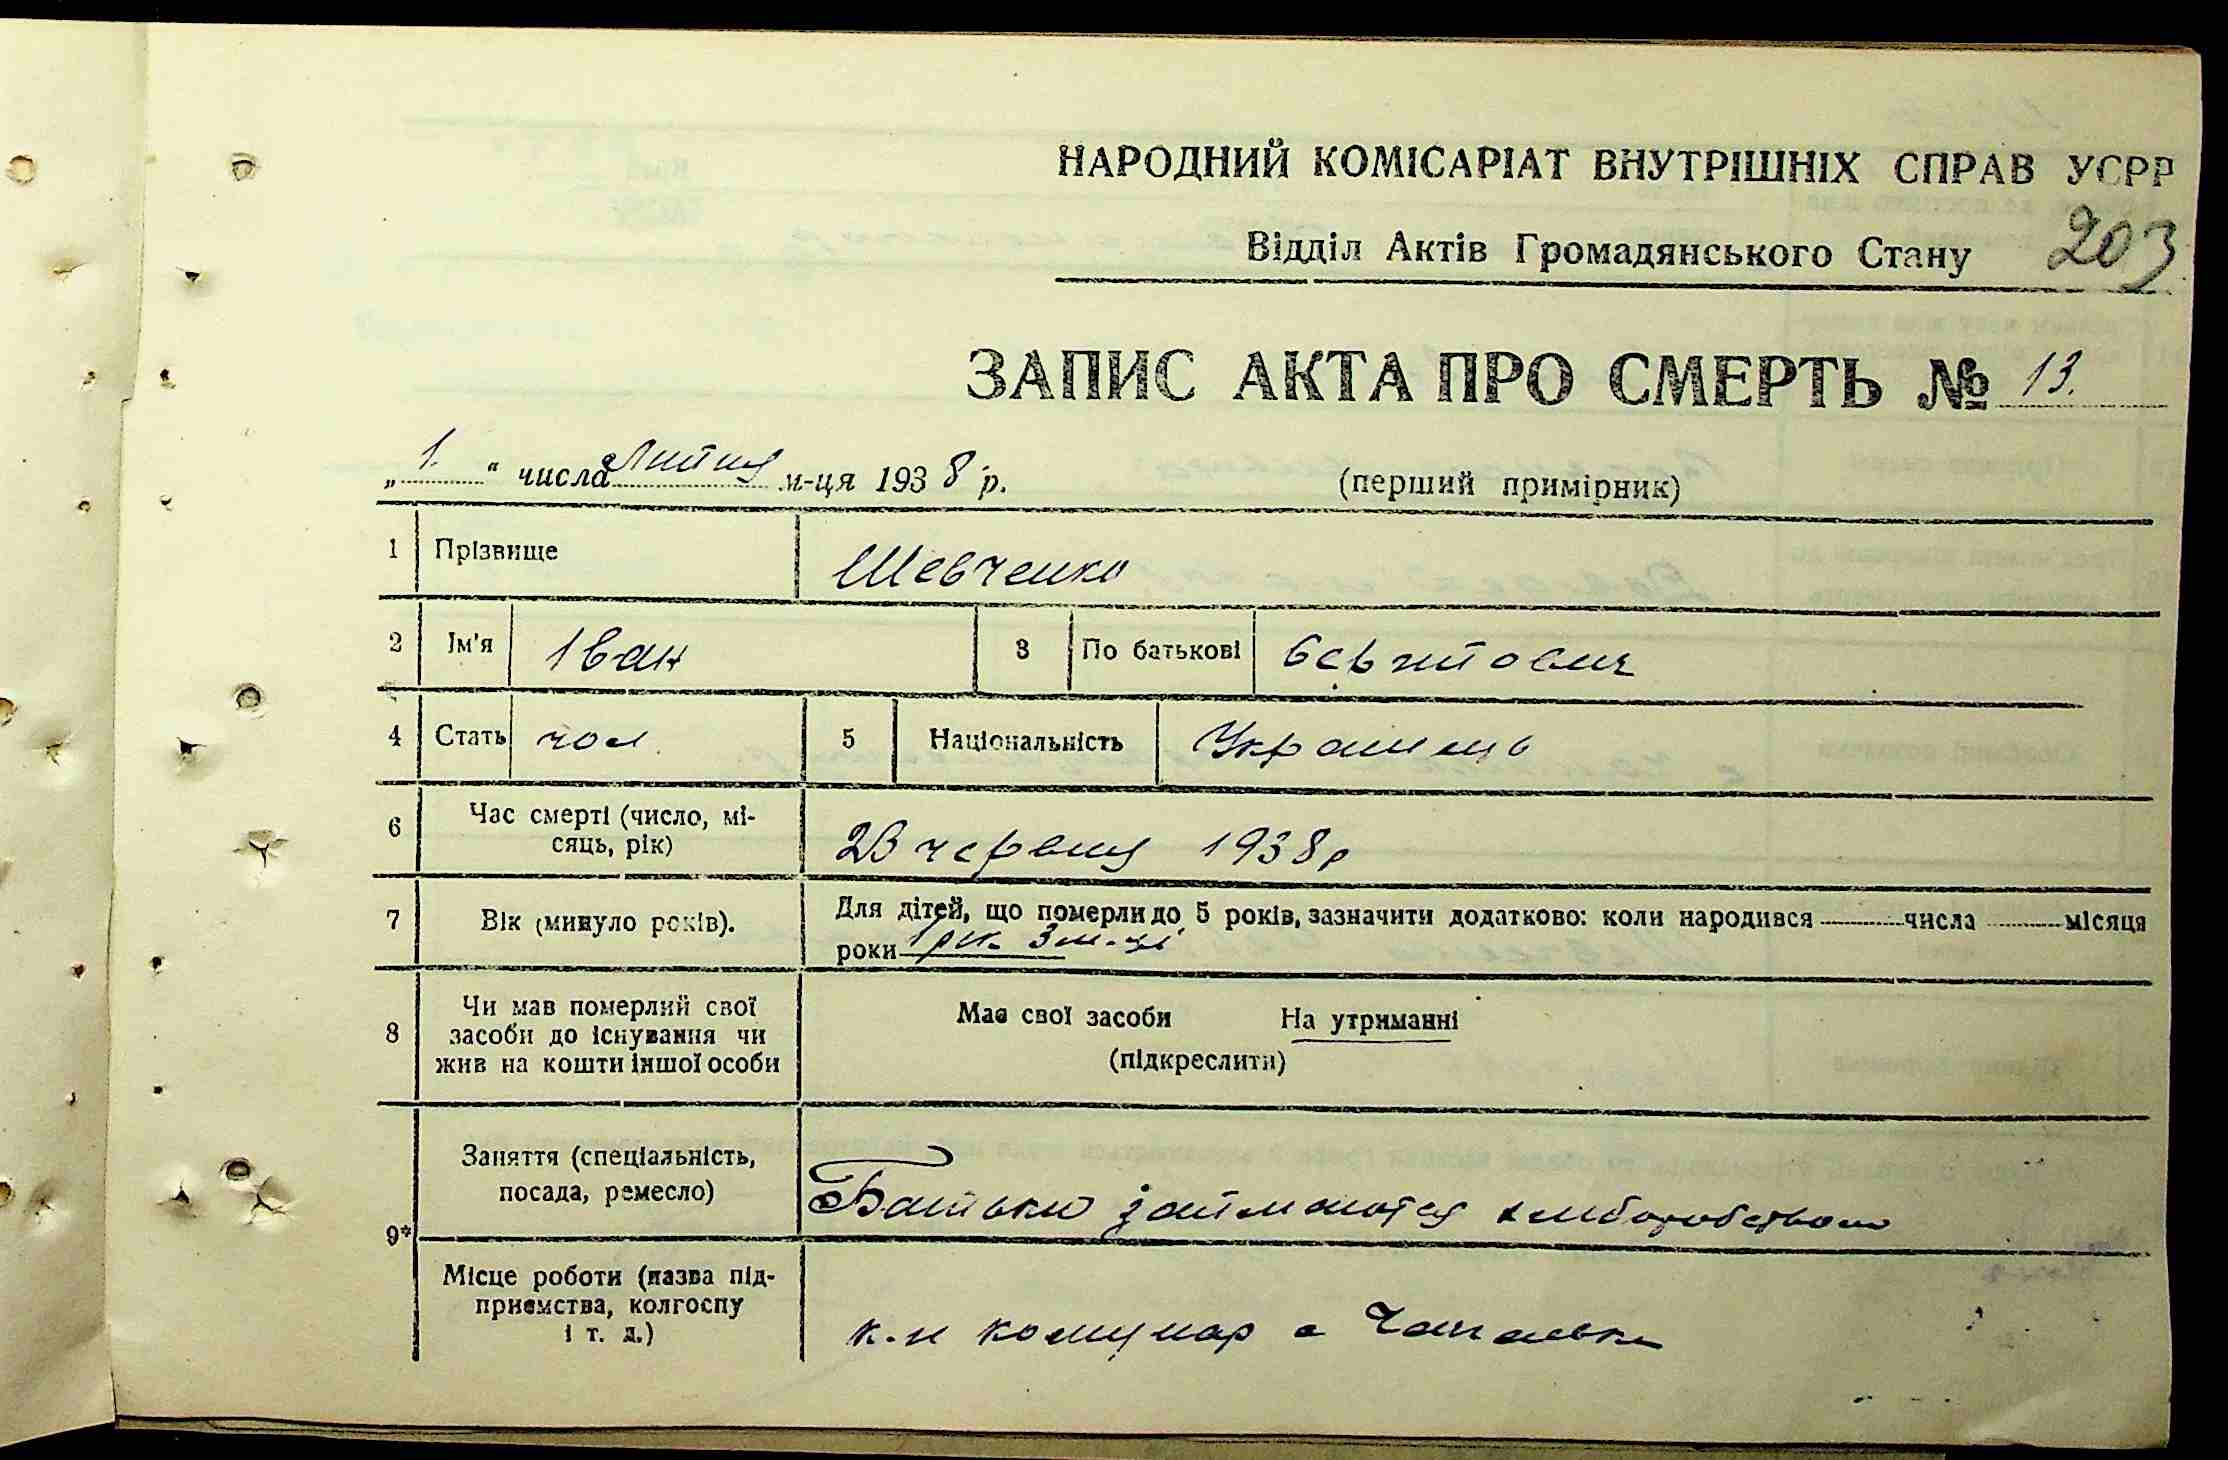 НАРОДНИЙ КОМІСАРІАТ ВНУТРІШНІХ СПРАВ УСРР
Відділ Актів Громадянського Стану 203
ЗАПИС АКТА ПРО СМЕРТЬ № 13.
„ 1. “ числа Липня м-ця 1938 р. (перший примірник)
1 Прізвище Шевченко
2 Ім'я Іван 3 По батькові
4 Стать чол. 5 Національність Українець
6 Час смерті (число, мі-
сяць, рік) 23 червня 1938р
7 Вік (минуло років). Для дітей, що померли до 5 років, зазначити додатково: коли народився числа місяця
роки 1 рік 3 м-ці
8 Чи мав померлий свої
засоби до існування чи
жив на кошти іншої особи
Має свої засоби На утриманні
(підкреслити)
9* Заняття (спеціальність,
посада, ремесло) Батьки займаются хліборобством
Місце роботи (назва під-
приємства, колгоспу
і т. д.) к-п комунар с Чапаєвка